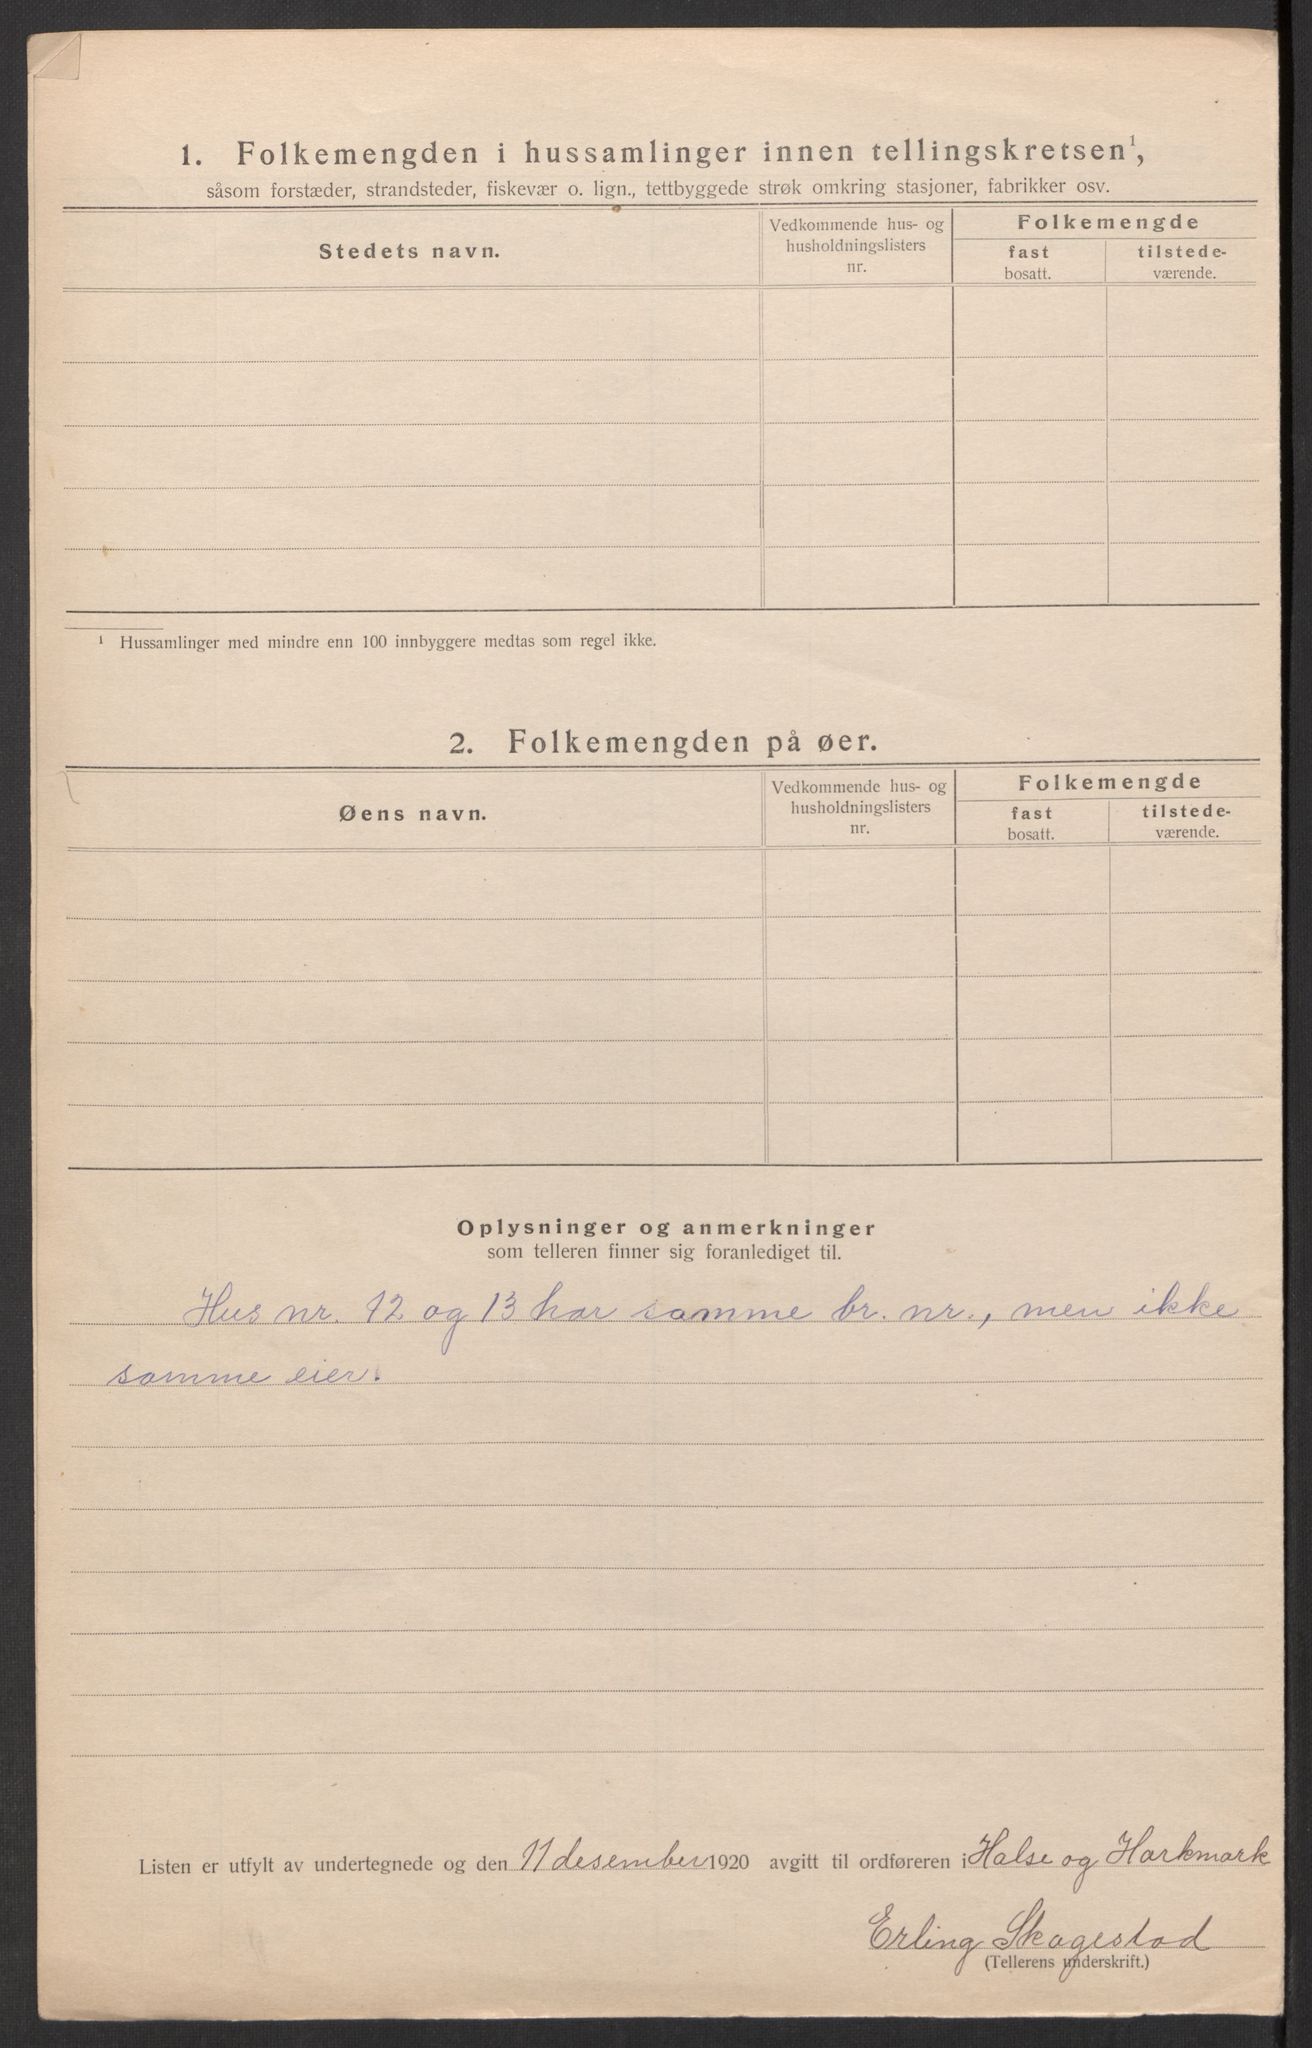 1. Folkemengden i hussamlinger innen tellingskretsen¹,
såsom forstæder, strandsteder, fiskevær o. lign., tettbyggede strøk omkring stasjoner, fabrikker osv.
Stedets navn.
Vedkommende hus- og
husholdningslisters
nr.
Folkemengde
fast
bosatt.
tilstede-
værende.
¹ Hussamlinger med mindre enn 100 innbyggere medtas som regel ikke.
2. Folkemengden på øer.
Øens navn.
Vedkommende hus- og
husholdningslisters
nr.
Folkemengde
fast
bosatt.
tilstede-
værende.
Oplysninger og anmerkninger
som telleren finner sig foranlediget til.
Hus nr. 12 og 13 har samme br. nr., men ikke
samme eier.
Listen er utfylt av undertegnede og den 11 desember 1920 avgitt til ordføreren i Halse og Harkmark
Erling Skagestad
(Tellerens underskrift.)